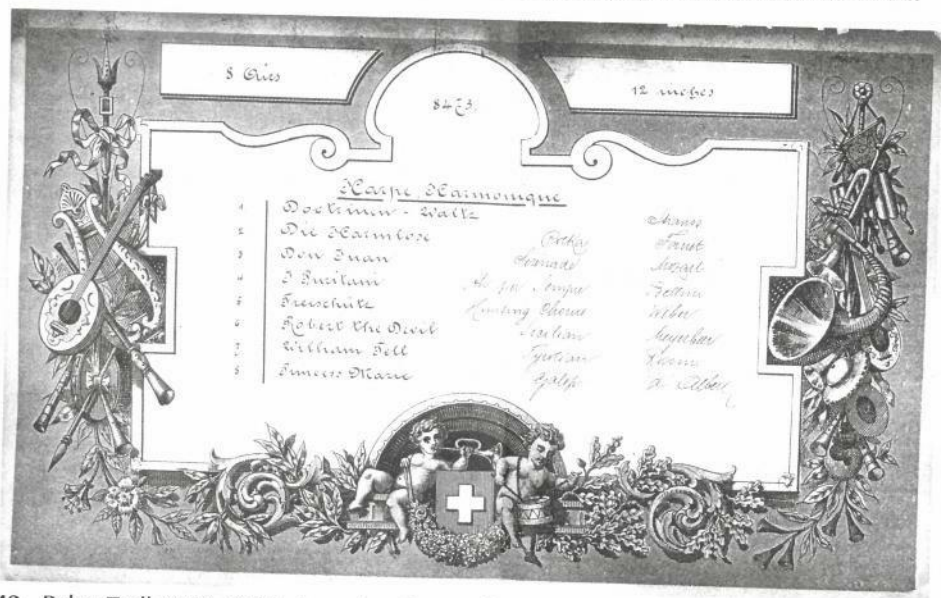 8 Airs
12 inches
8473.
Harpe Harmonique
1 Doctrinen - Waltz Strauss
2 Die Harmlose Polka Faust
3 Don Juan Serenade Mozart
4 I Puritani Bellini
5 Freischütz Hunting Chorus Weber
6 Robert the Devil Sicilian Meyerbeer
7 William Tell Tyrolian
8 Princess Marie Galop d'Albert